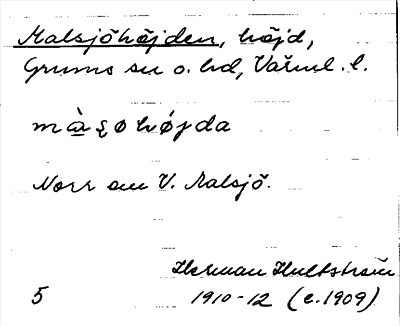 Malsjöhöjden, höjd,
Grums sn o. hd, Värml. l.
Norr om V. Malsjö.
Herman Hultström
5 1910-12 (c. 1909)